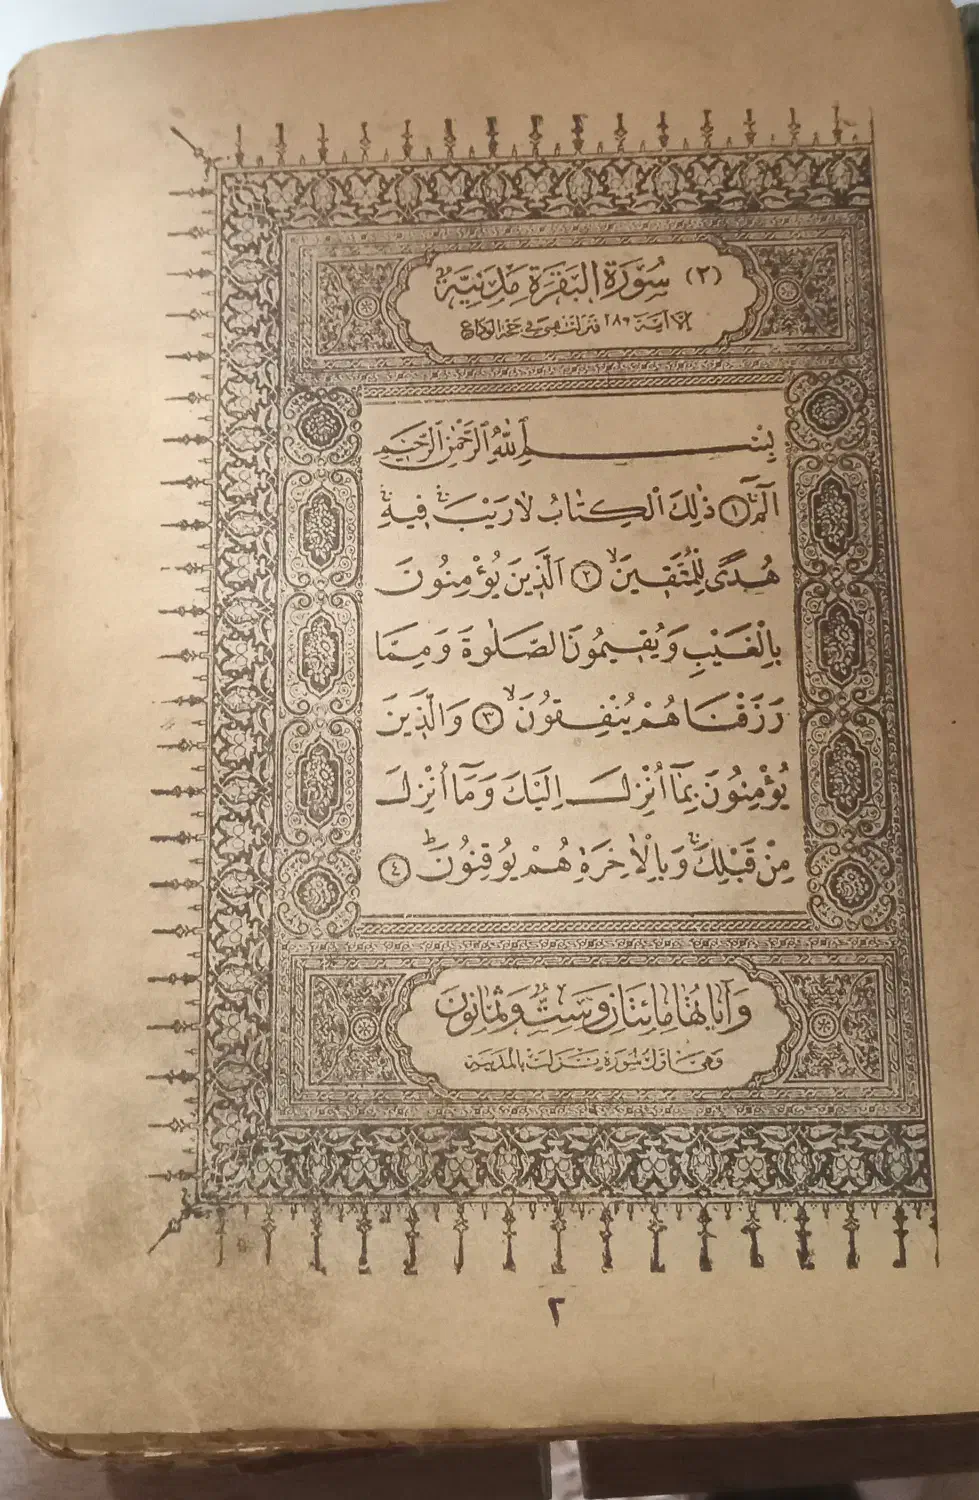 (٢) سُورَةُ الْبَقَرَةِ مَدَنِيَّةٌ
اِلَّا آيَة ٢٨١ فنزلت بمنى في حجة الوداع
بِسْمِ اللّٰهِ الرَّحْمٰنِ الرَّحِيمِ
الٓمٓۚ ﴿١﴾ ذٰلِكَ الْكِتَابُ لَا رَيْبَۚۛ فِيهِۚۛ
هُدًى لِلْمُتَّقِينَۙ ﴿٢﴾ اَلَّذِينَ يُؤْمِنُونَ
بِالْغَيْبِ وَيُقِيمُونَ الصَّلٰوةَ وَمِمَّا
رَزَقْنَاهُمْ يُنْفِقُونَۙ ﴿٣﴾ وَالَّذِينَ
يُؤْمِنُونَ بِمَٓا اُنْزِلَ اِلَيْكَ وَمَٓا اُنْزِلَ
مِنْ قَبْلِكَۚ وَبِالْاٰخِرَةِ هُمْ يُوقِنُونَۜ ﴿٤﴾
وَآيَاتُهَا مِائَتَانِ وَسِتٌّ وَثَمَانُونَ
وَهِيَ اَوَّلُ سُورَةٍ نَزَلَتْ بِالْمَدِينَةِ
٢